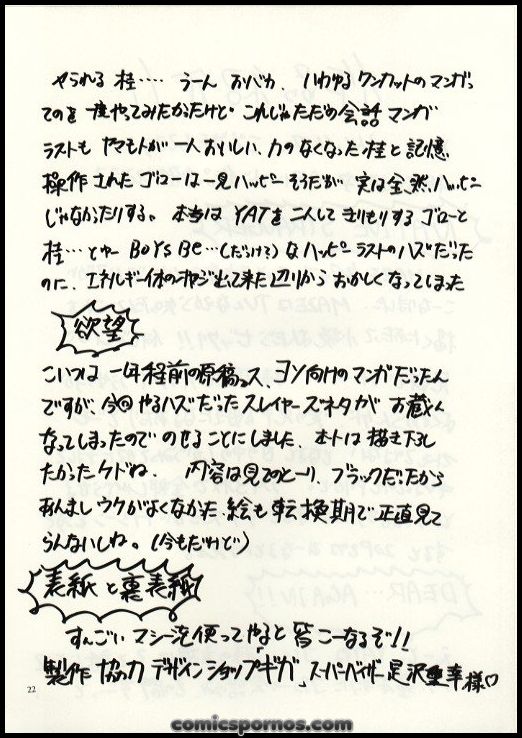 やられる 桂‥‥ うーん おバカ、いわゆるワンカットのマンガっ
てのを 一度やってみたかったけど これじゃただの会話マンガ
ラストも ヤマモトが一人おいしい、力のなくなった桂と記憶
操作されたゴローは一見ハッピーそうだが 実は全然ハッピー
じゃなかったりする。本当はYATを二人してきりもりするゴローと
桂‥‥とゆーBOYS BE…(だっけ?)なハッピーラストのハズだった
のに、エネルギー体のオヤジ出て来た辺りからおかしくなってしまった
欲望
こいつは一年程前の原稿っス、ヨソ向けのマンガだったん
ですが、今回やるハズだったスレイヤーズネタが お蔵入
なってしまったので のせることにしました、ホントは描き下し
たかったケドね。 内容は見てのとーり、ブラックだったから
あんましウケがよくなかった、絵も転換期で正直見て
らんないしね。(今もだけど)
表紙と裏表紙
すんごい マシーン 使って やると 皆 こーなるぞ!!
製作 協力 デザインショップ"ギガ" スーパーバイザー 是沢 幸様♡
22
comicspornos.com